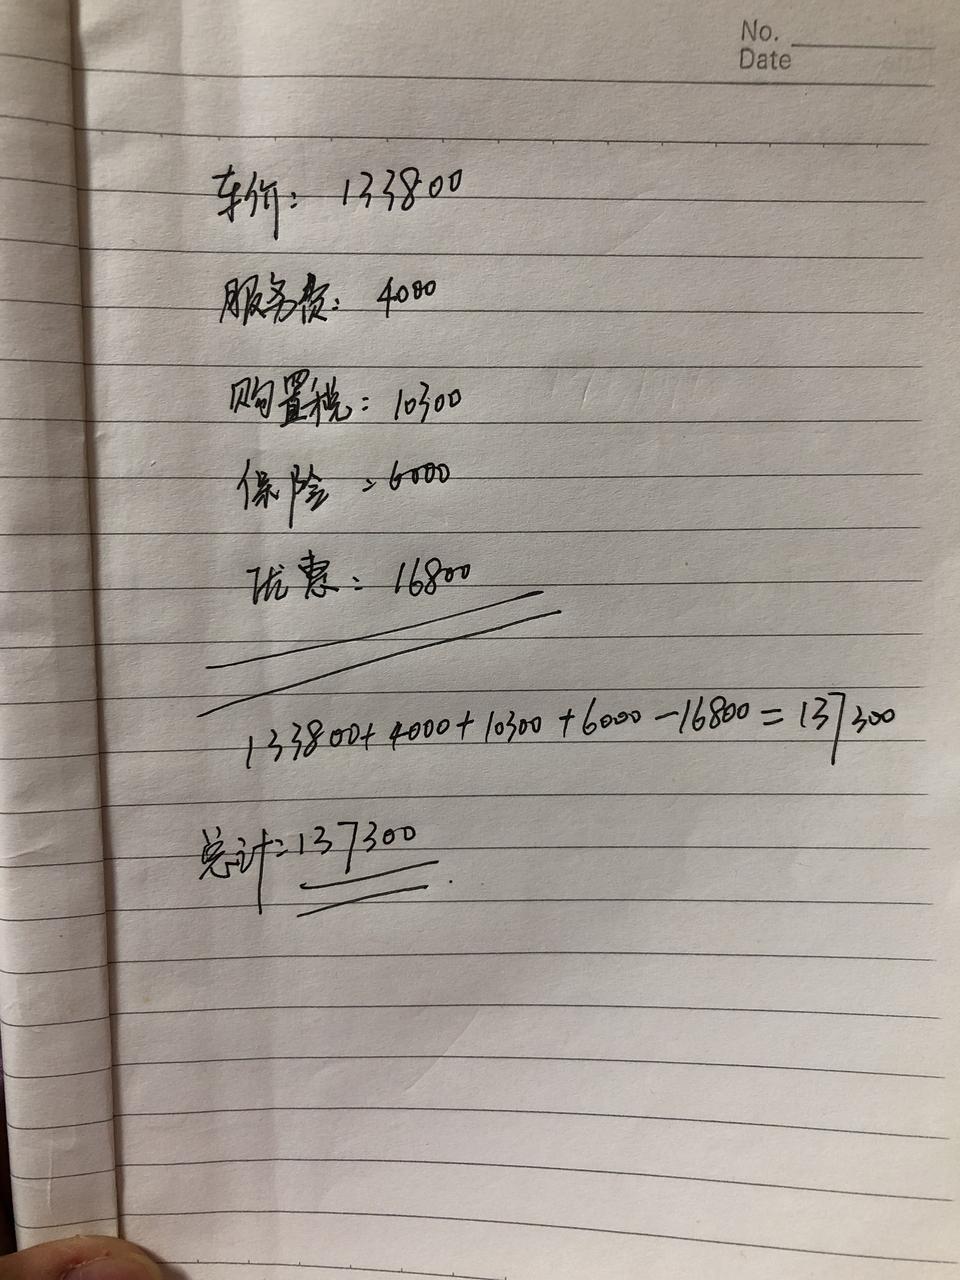 No.
Date
车价: 133800
服务费: 4000
购置税: 10300
保险: 6000
优惠: 16800
133800+4000+10300+6000-16800=137300
总计=137300